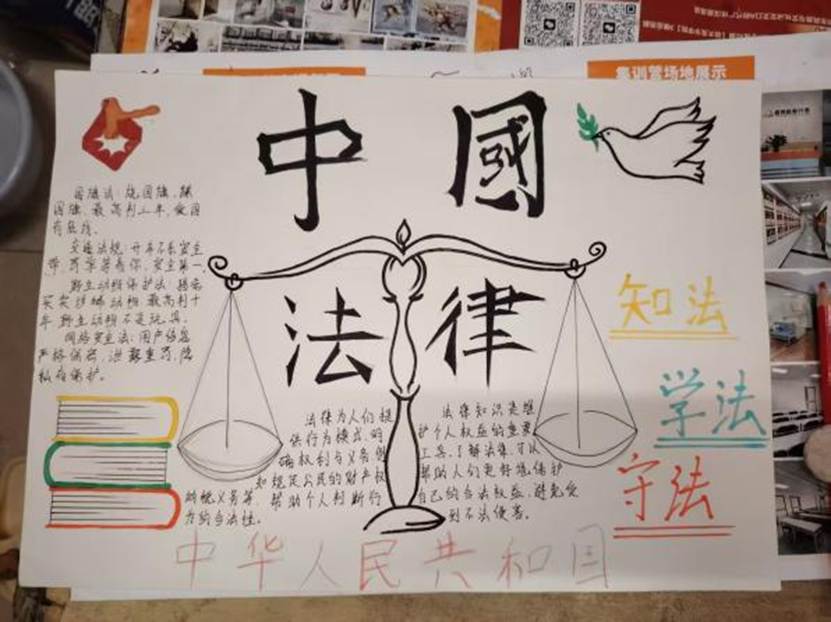 集训营场地展示
中國
法律
国旗法：烧国旗、踩
国旗、最高判三年，爱国
有底线。
交通法规：开车不系安全
带，罚单等着你，安全第一。
野生动物保护法：猎杀
买卖珍稀动物 最高判十
年 野生动物不是玩具。
网络安全法：用户信息
严格保密，泄露重罚，隐
私有保护。
知法
学法
守法
法律为人们提
供行为模式，明
确权利与义务，例
如规定公民的财产权
纳税义务等，帮助个人判断行
为的合法性。
法律知识是维
护个人权益的重要
工具，了解法律，可以
帮助人们更好地维护
自己的合法权益，避免受
到不法侵害。
中华人民共和国